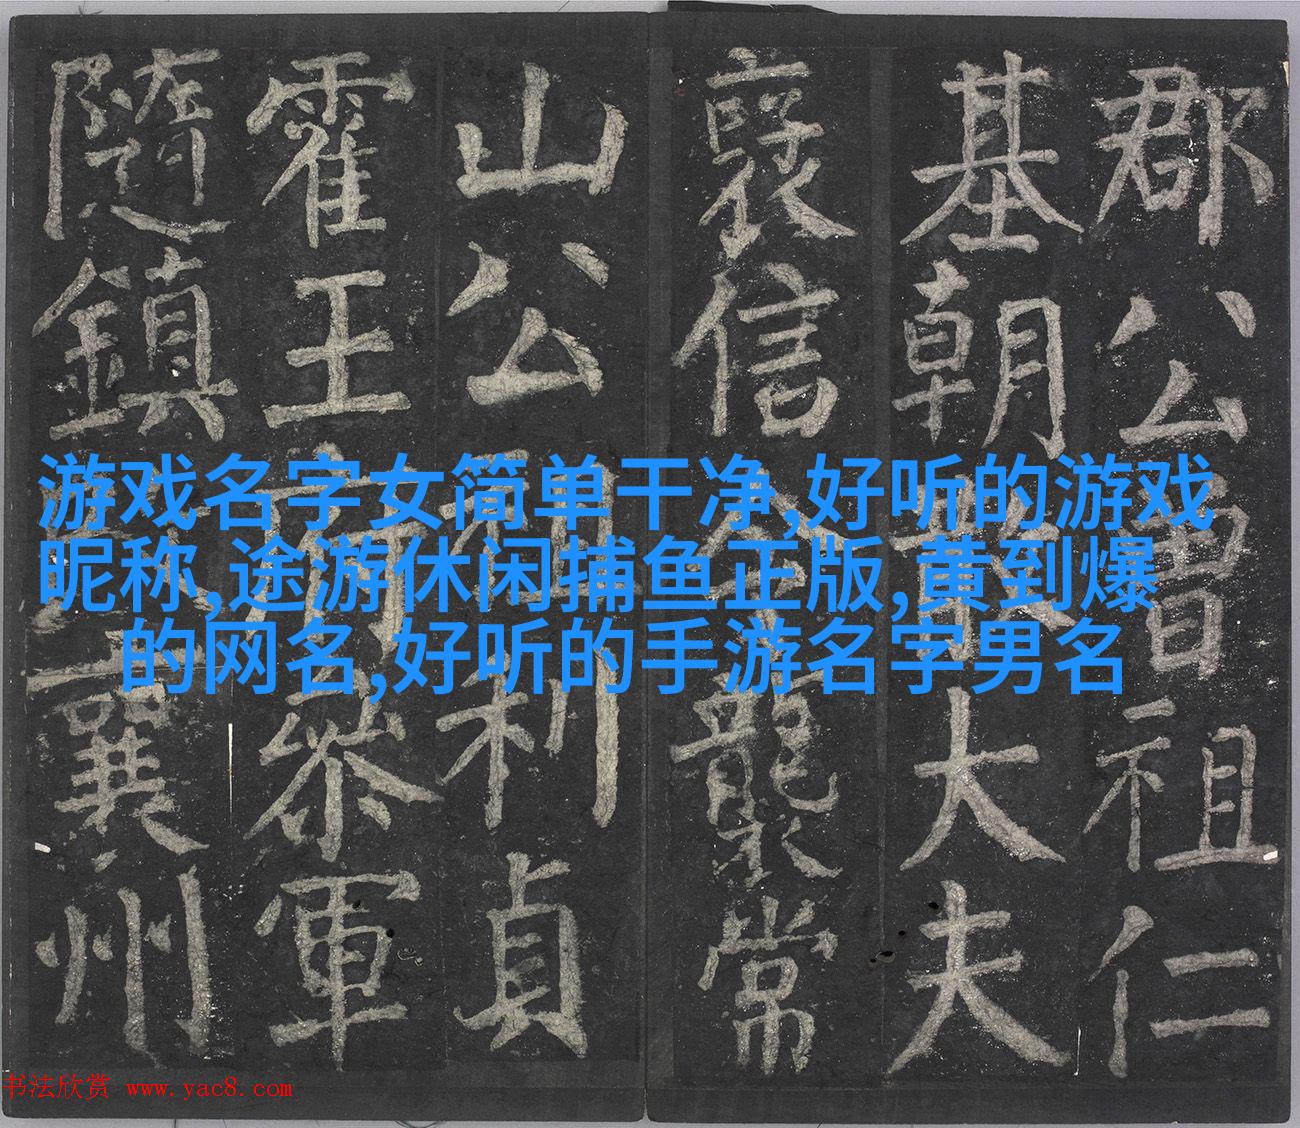 郡公曾祖仁
基朝大夫
襃信令襲常
山公利貞
霍王府叅軍
隨鎮襄州
游戏名字女简单干净,好听的游戏
昵称,途游休闲捕鱼正版,黄到爆
的网名,好听的手游名字男名
书法欣赏 www.yac8.com